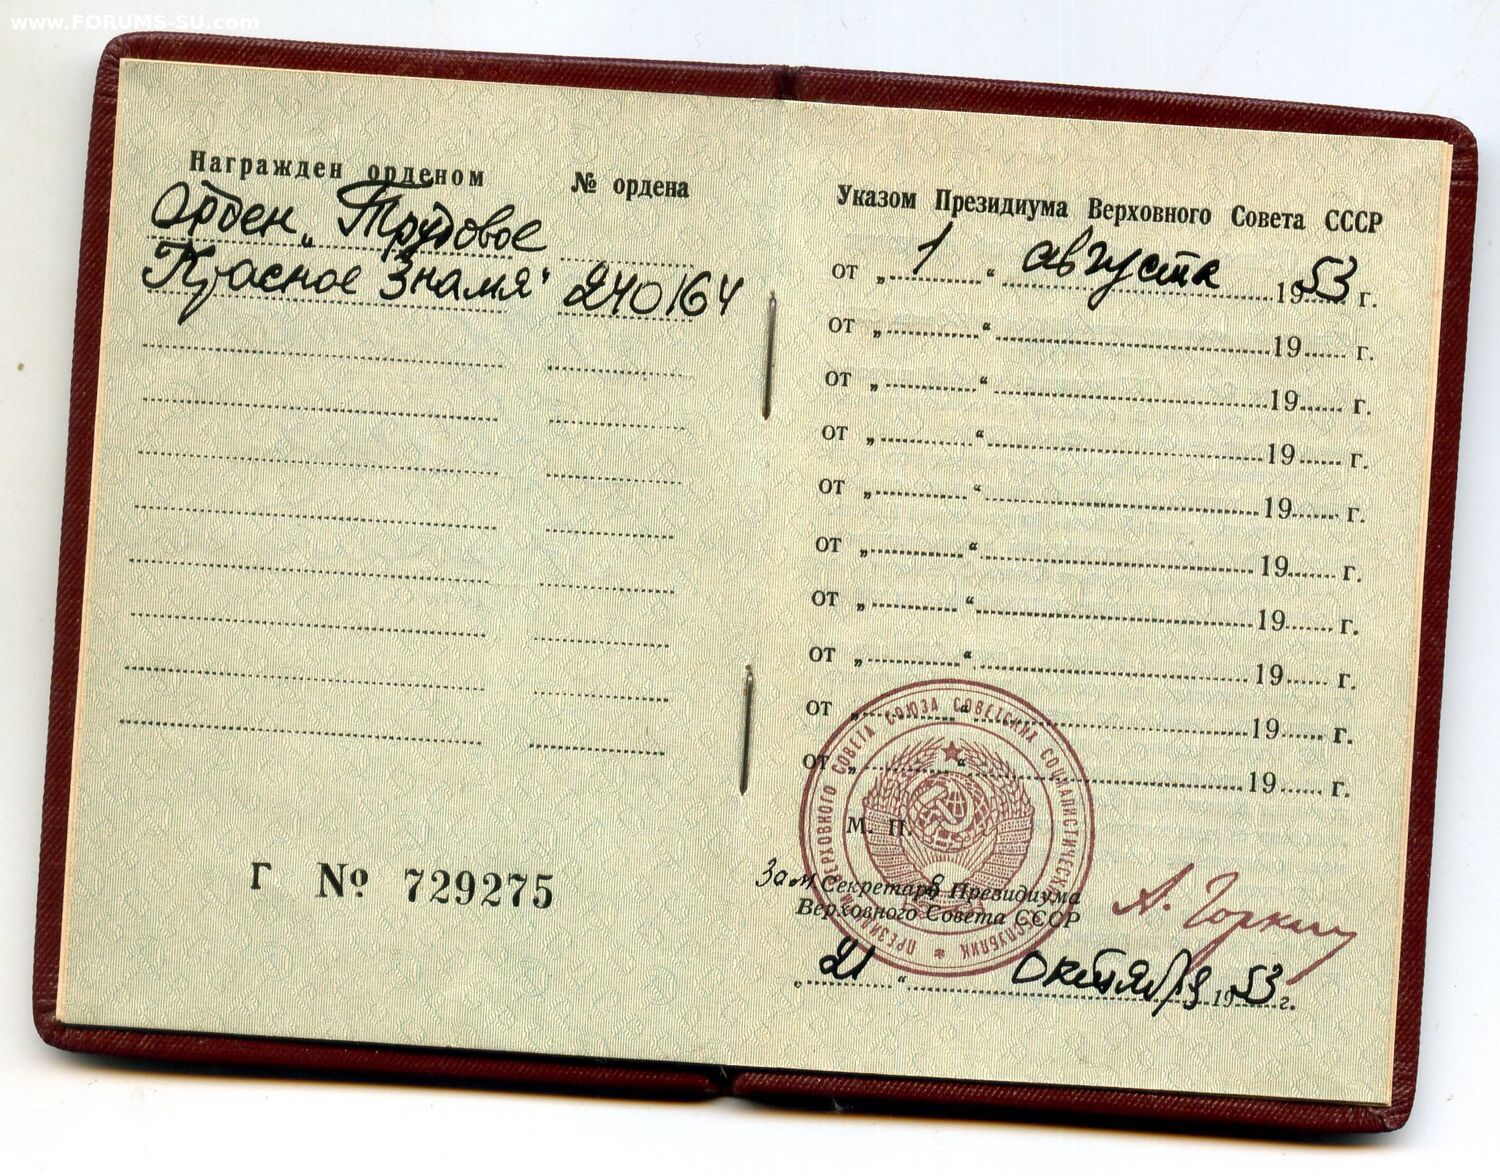 www.FORUMS-SU.com
Награжден орденом № ордена
Орден „Трудовое
Красное Знамя" 240164
Г № 729275
Указом Президиума Верховного Совета СССР
от „ 1 “ августа 1953 г.
от „ “ 19 г.
от „ “ 19 г.
от „ “ 19 г.
от „ “ 19 г.
от „ “ 19 г.
от „ “ 19 г.
от „ “ 19 г.
от „ “ 19 г.
от „ “ 19 г.
ПРЕЗИДИУМ ВЕРХОВНОГО СОВЕТА СОЮЗА СОВЕТСКИХ СОЦИАЛИСТИЧЕСКИХ РЕСПУБЛИК
М. П.
Зам Секретаря Президиума
Верховного Совета СССР
А. Горкин
„ 21 “ октября 1953 г.